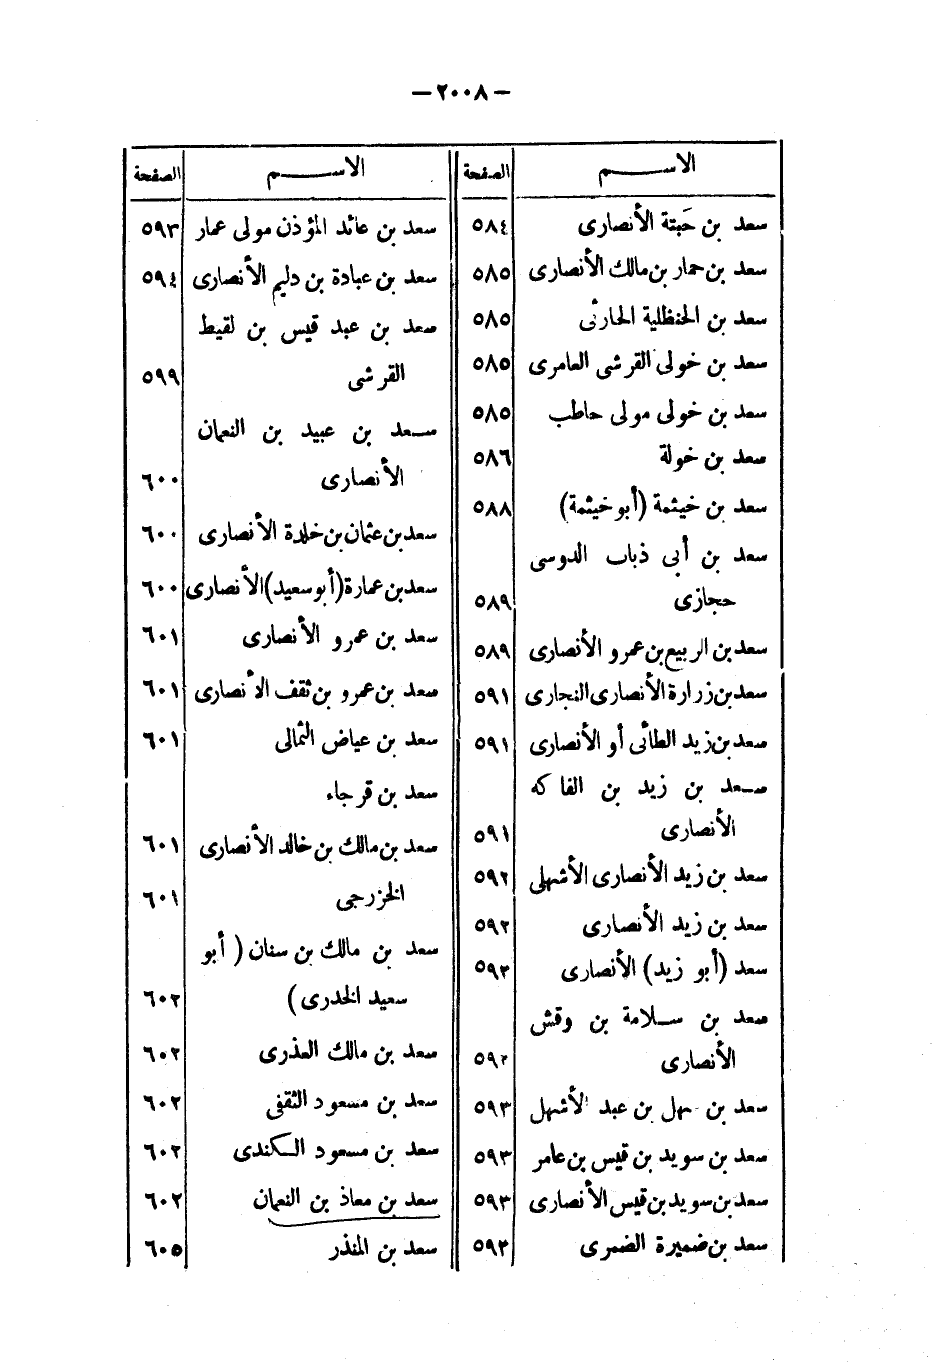 — ٢٠٠٨ —
الاســـم الصفحة
سعد بن حَبتة الأنصارى ٥٨٤
سعد بن حمار بن مالك الأنصارى ٥٨٥
سعد بن الحنظلية الحارثى ٥٨٥
سعد بن خولى القرشى العامرى ٥٨٥
سعد بن خولى مولى حاطب ٥٨٥
سعد بن خولة ٥٨٦
سعد بن خيثمة (أبو خيثمة) ٥٨٨
سعد بن أبى ذباب الدوسى
حجازى ٥٨٩
سعد بن الربيع بن عمرو الأنصارى ٥٨٩
سعد بن زرارة الأنصارى النجارى ٥٩١
سعد بن زيد الطائى أو الأنصارى ٥٩١
سعد بن زيد بن الفاكه
الأنصارى ٥٩١
سعد بن زيد الأنصارى الأشهلى ٥٩٢
سعد بن زيد الأنصارى ٥٩٢
سعد (أبو زيد) الأنصارى ٥٩٢
سعد بن سلامة بن وقش
الأنصارى ٥٩٢
سعد بن سهل بن عبد الأشهل ٥٩٣
سعد بن سويد بن قيس بن عامر ٥٩٣
سعد بن سويد بن قيس الأنصارى ٥٩٣
سعد بن ضميرة الضمرى ٥٩٣
الاســـم الصفحة
سعد بن عائد المؤذن مولى عمار ٥٩٣
سعد بن عبادة بن دليم الأنصارى ٥٩٤
سعد بن عبد قيس بن لقيط
القرشى ٥٩٩
سعد بن عبيد بن النعمان
الأنصارى ٦٠٠
سعد بن عثمان بن خلدة الأنصارى ٦٠٠
سعد بن عمارة (أبو سعيد) الأنصارى ٦٠٠
سعد بن عمرو الأنصارى ٦٠١
سعد بن عمرو بن ثقف الأنصارى ٦٠١
سعد بن عياض الثمالى ٦٠١
سعد بن قرجاء
سعد بن مالك بن خالد الأنصارى ٦٠١
الخزرجى ٦٠١
سعد بن مالك بن سنان ( أبو
سعيد الخدرى ) ٦٠٢
سعد بن مالك العذرى ٦٠٢
سعد بن مسعود الثقفى ٦٠٢
سعد بن مسعود الكندى ٦٠٢
سعد بن معاذ بن النعمان ٦٠٢
سعد بن المنذر ٦٠٥